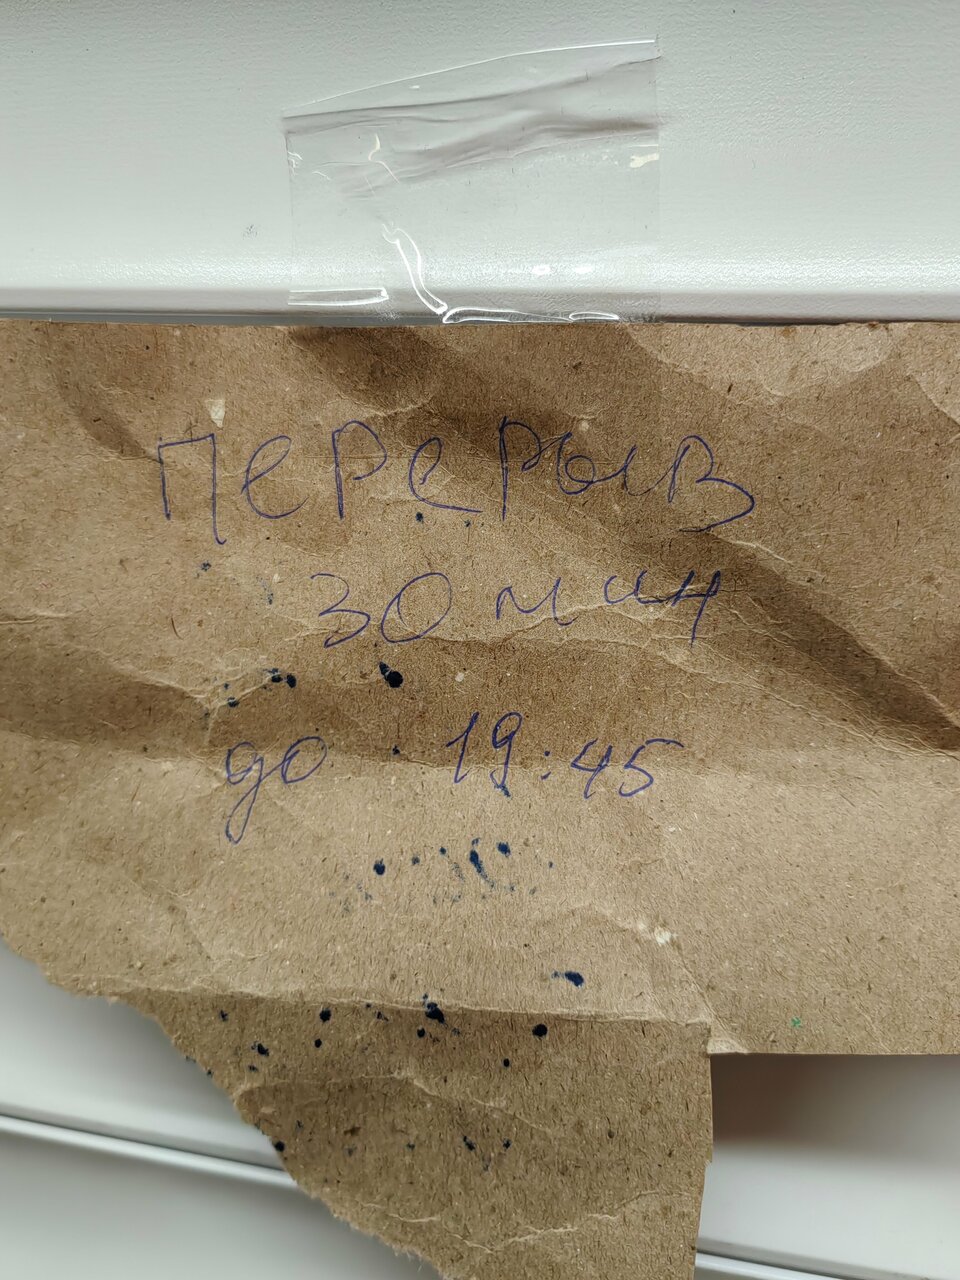 перерыв
30 мин
до 19:45